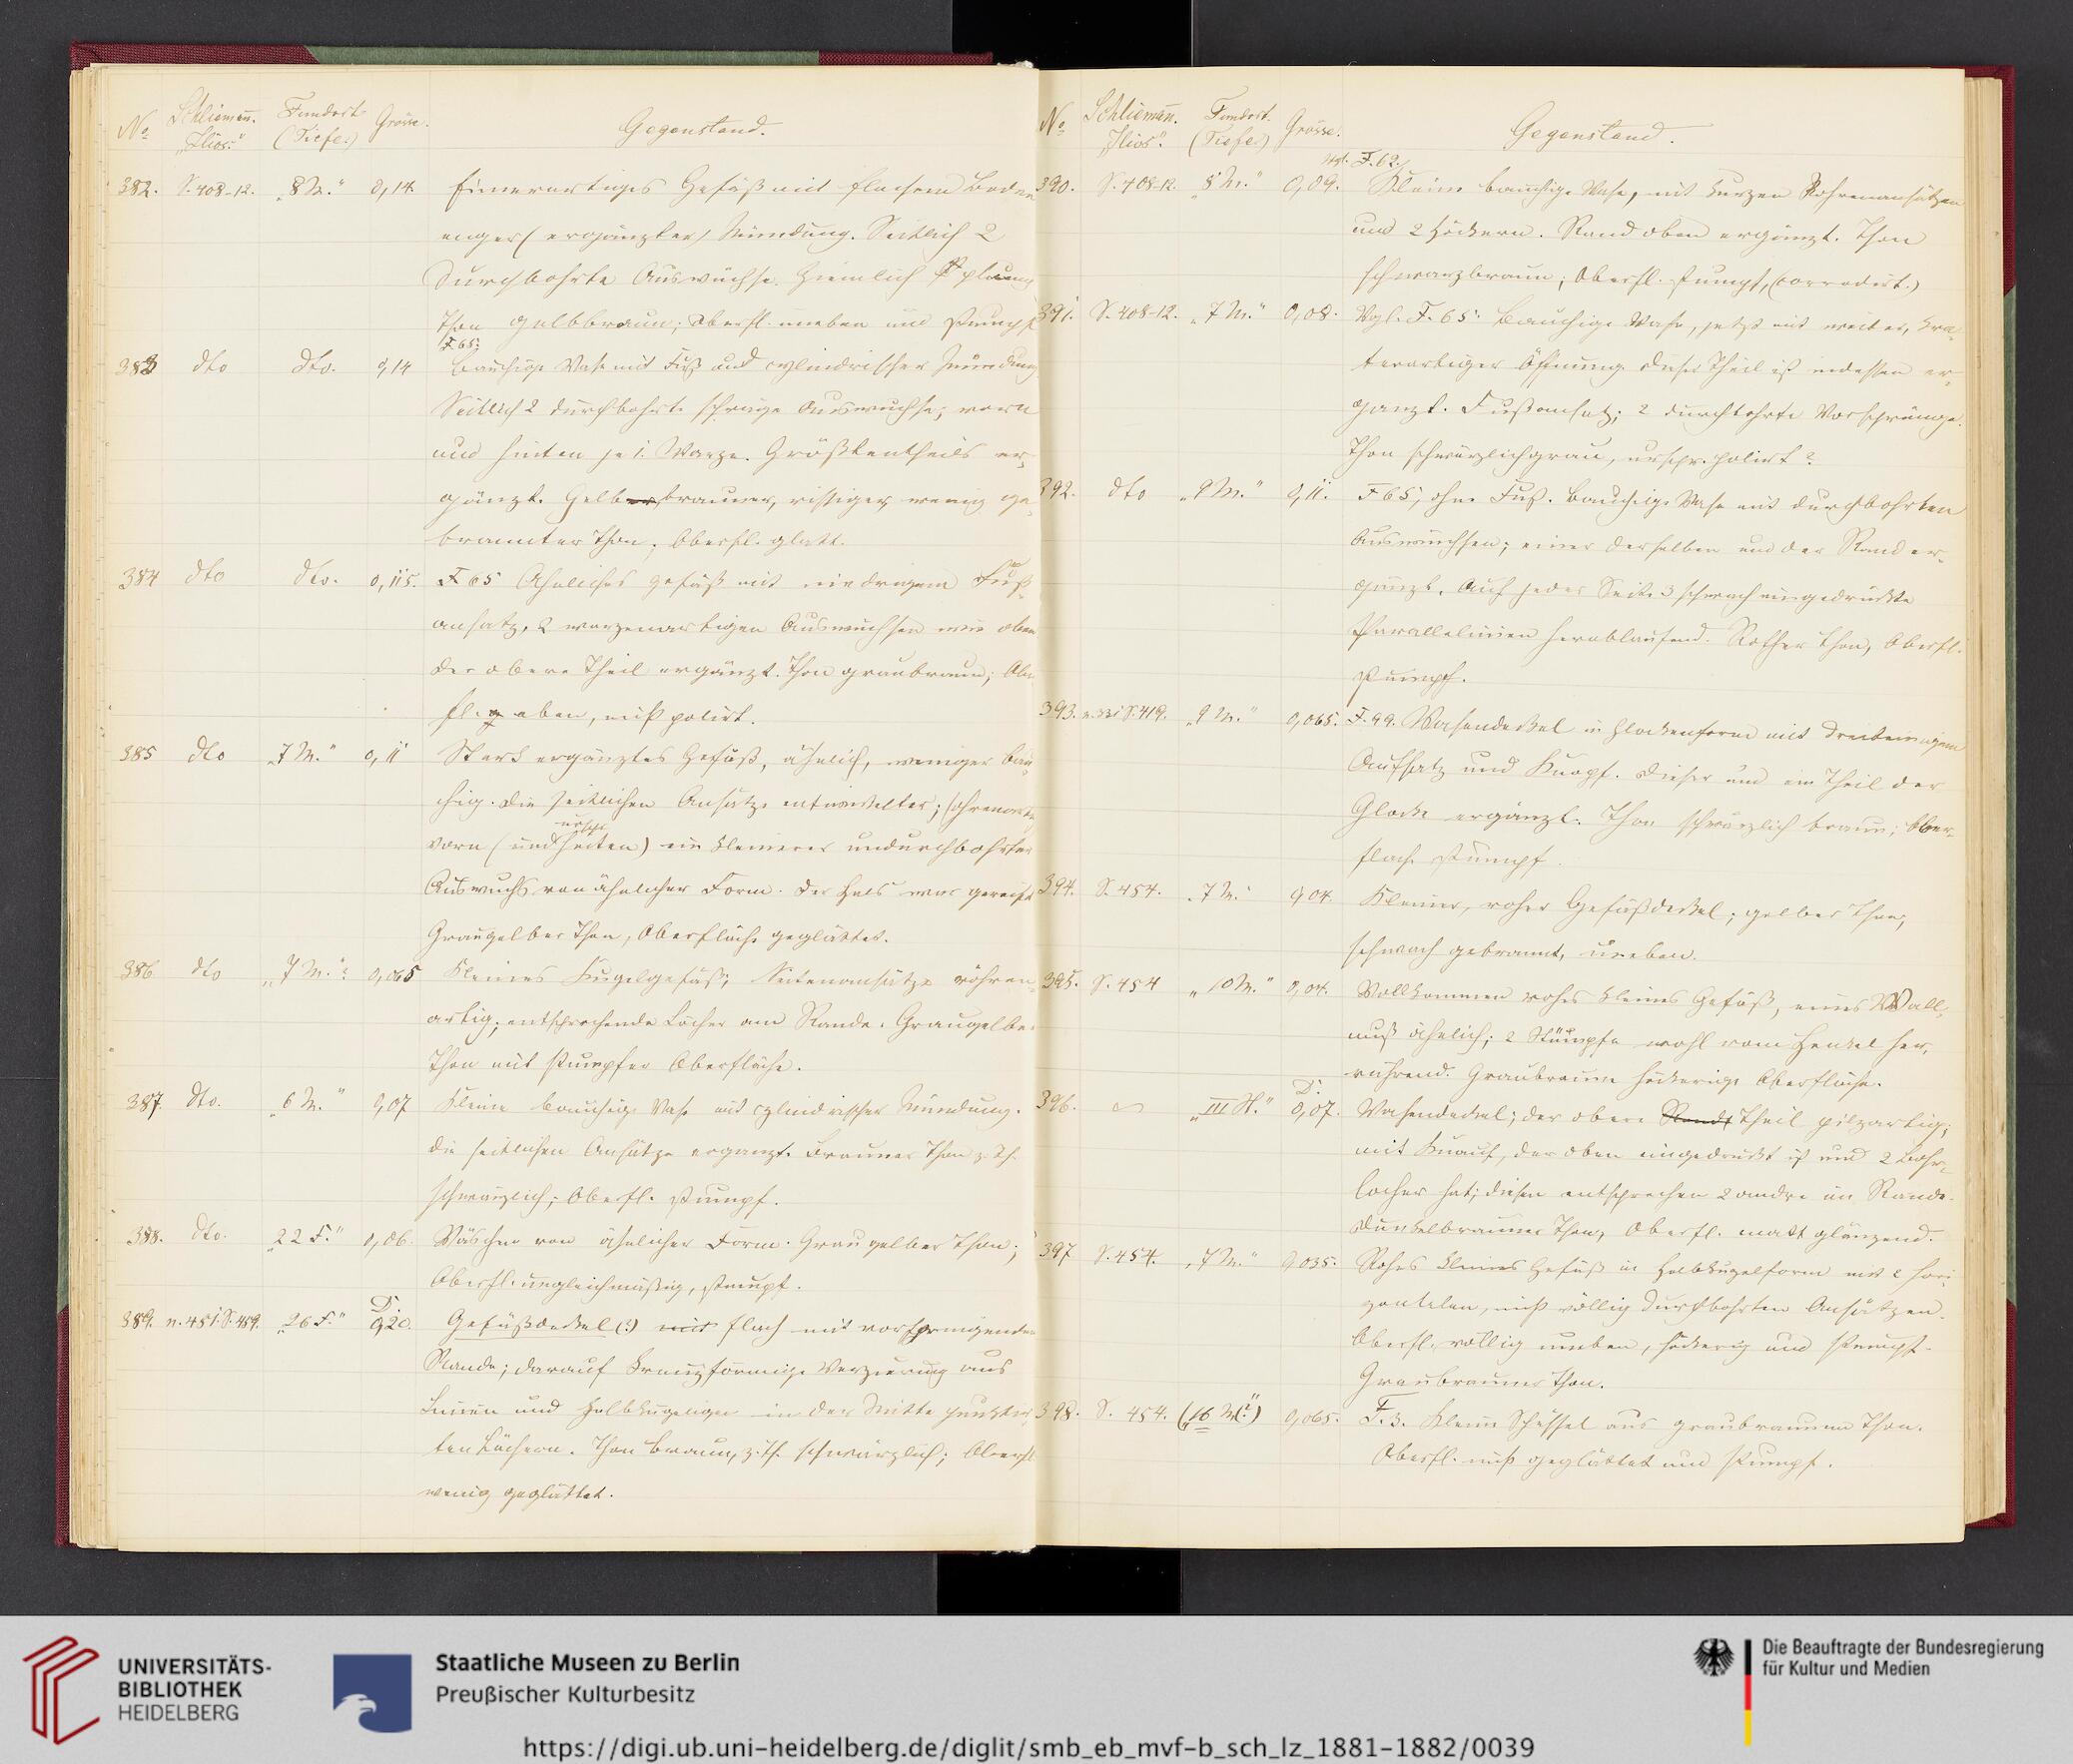 No Schliemañ. Fundort Grösse. Gegenstand.
„Ilios." (Tiefe.)
382. S. 408-12. „8 M." 0,14. Eimerartiges Gefäß mit flachem Boden
enger (ergänzter) Mündung. Seitlich 2
durchbohrte Auswüchse. Ziemlich plump
Thon gelbbraun; Oberfl. uneben und stumpf
F. 65.
383 dto dto. 0,14 Bauchige Vase mit Fuß und cylindrischer Mündung
Seitlich 2 durchbohrte schräge Auswüchse; vorn
und hinten je 1. Warze. Größtentheils er-
gänzt. Gelbbrauner, rissiger, wenig ge-
brannter Thon. Oberfl. glatt.
384 dto dto. 0,115. F 65 Ähnliches Gefäß mit niedrigem Fuß-
ansatz, 2 warzenartigen Auswüchsen wie oben
der obere Theil ergänzt. Thon graubraun; Ober
fl. eben, nicht polirt.
385 dto „7 M." 0,11 Stark ergänztes Gefäß, ähnlich, weniger bau
chig. Die seitlichen Ansätze entwickelter; (ohrenartig
urspr.
vorn (und hinten) ein kleinerer undurchbohrter
Auswuchs von ähnlicher Form. Der Hals war gereift
Graugelber Thon, Oberfläche geglättet.
386 dto „7 M." 0,065 Kleines Kugelgefäß; Seitenansätze röhren-
artig; entsprechende Löcher am Rande. Graugelber
Thon mit stumpfer Oberfläche.
387. dto. „6 M." 0,07 Kleine bauchige Vase mit cylindrischer Mündung.
Die seitlichen Ansätze ergänzt. Brauner Thon z. Th.
schwärzlich; Oberfl. stumpf.
388. dto. „22 F." 0,06. Väschen von ähnlicher Form. Graugelber Thon;
Oberfl. ungleichmäßig, stumpf.
D.
389. n. 451. S. 459. „26 F." 0,20. Gefäßdeckel (?) mit flach mit vorspringendem
Rande; darauf kreuzförmige Verzierung aus
Linien und halbkugeligen in der Mitte punktir
ten Löchern. Thon braun, z. Th. schwärzlich; Oberfl
wenig geglättet.
No Schliemañ. Fundort. Grösse. Gegenstand.
„Ilios". (Tiefe.)
Vgl. F. 62.
390. S. 408-12. „8 M." 0,09. Kleine bauchige Vase, mit kurzen Röhrenansätzen
und 2 Höckern. Rand oben ergänzt. Thon
schwarzbraun; Oberfl. stumpf, (corrodirt.)
391. S. 408-12. „7 M." 0,08. Vgl. F. 65. Bauchige Vase, jetzt mit weiter, kra-
terartiger Öffnung dieser Theil ist indessen er-
gänzt. Fußansatz; 2 durchbohrte Vorsprünge.
Thon schwärzlichgrau, urspr. polirt?
392. dto „9 M." 0,11. F 65, ohne Fuß. Bauchige Vase mit durchbohrten
Auswüchsen; einer derselben und der Rand er-
gänzt. Auf jeder Seite 3 schwach eingedrückte
Parallellinien herablaufend. Rother Thon, Oberfl.
stumpf.
393. S. 419. „9 M." 0,065. F. 99. Vasendeckel in Glockenform mit dreibeinigem
Aufsatz und Knopf. Dieser und ein Theil der
Glocke ergänzt. Thon schwärzlich braun; Ober-
fläche stumpf.
394. S. 454. „7 M." 0,04. Kleiner, roher Gefäßdeckel; gelber Thon,
schwach gebrannt, uneben.
395. S. 454 „10 M." 0,04. Vollkommen rohes kleines Gefäß, einer Wall-
nuß ähnlich; 2 Stümpfe wohl vom Henkel her-
rührend. Graubraune höckerige Oberfläche.
D.
396. „III H." 0,07. Vasendeckel; der obere Rand Theil pilzartig;
mit Knauf, der oben eingedrückt ist und 2 Bohr-
löcher hat; diesen entsprechen 2 andre im Rande.
Dunkelbrauner Thon, Oberfl. matt glänzend.
397 S. 454. „7 M." 0,035. Rohes kleines Gefäß in Halbkugelform mit 2 hori
zontalen, nicht völlig durchbohrten Ansätzen.
Oberfl. völlig uneben, höckerig und stumpf.
Graubrauner Thon.
398. S. 454. („16 M.(?)") 0,065. F. 3. Kleine Schüssel aus graubraunem Thon.
Oberfl. nicht geglättet und stumpf.
UNIVERSITÄTS-
BIBLIOTHEK
HEIDELBERG
Staatliche Museen zu Berlin
Preußischer Kulturbesitz
Die Beauftragte der Bundesregierung
für Kultur und Medien
https://digi.ub.uni-heidelberg.de/diglit/smb_eb_mvf-b_sch_lz_1881-1882/0039